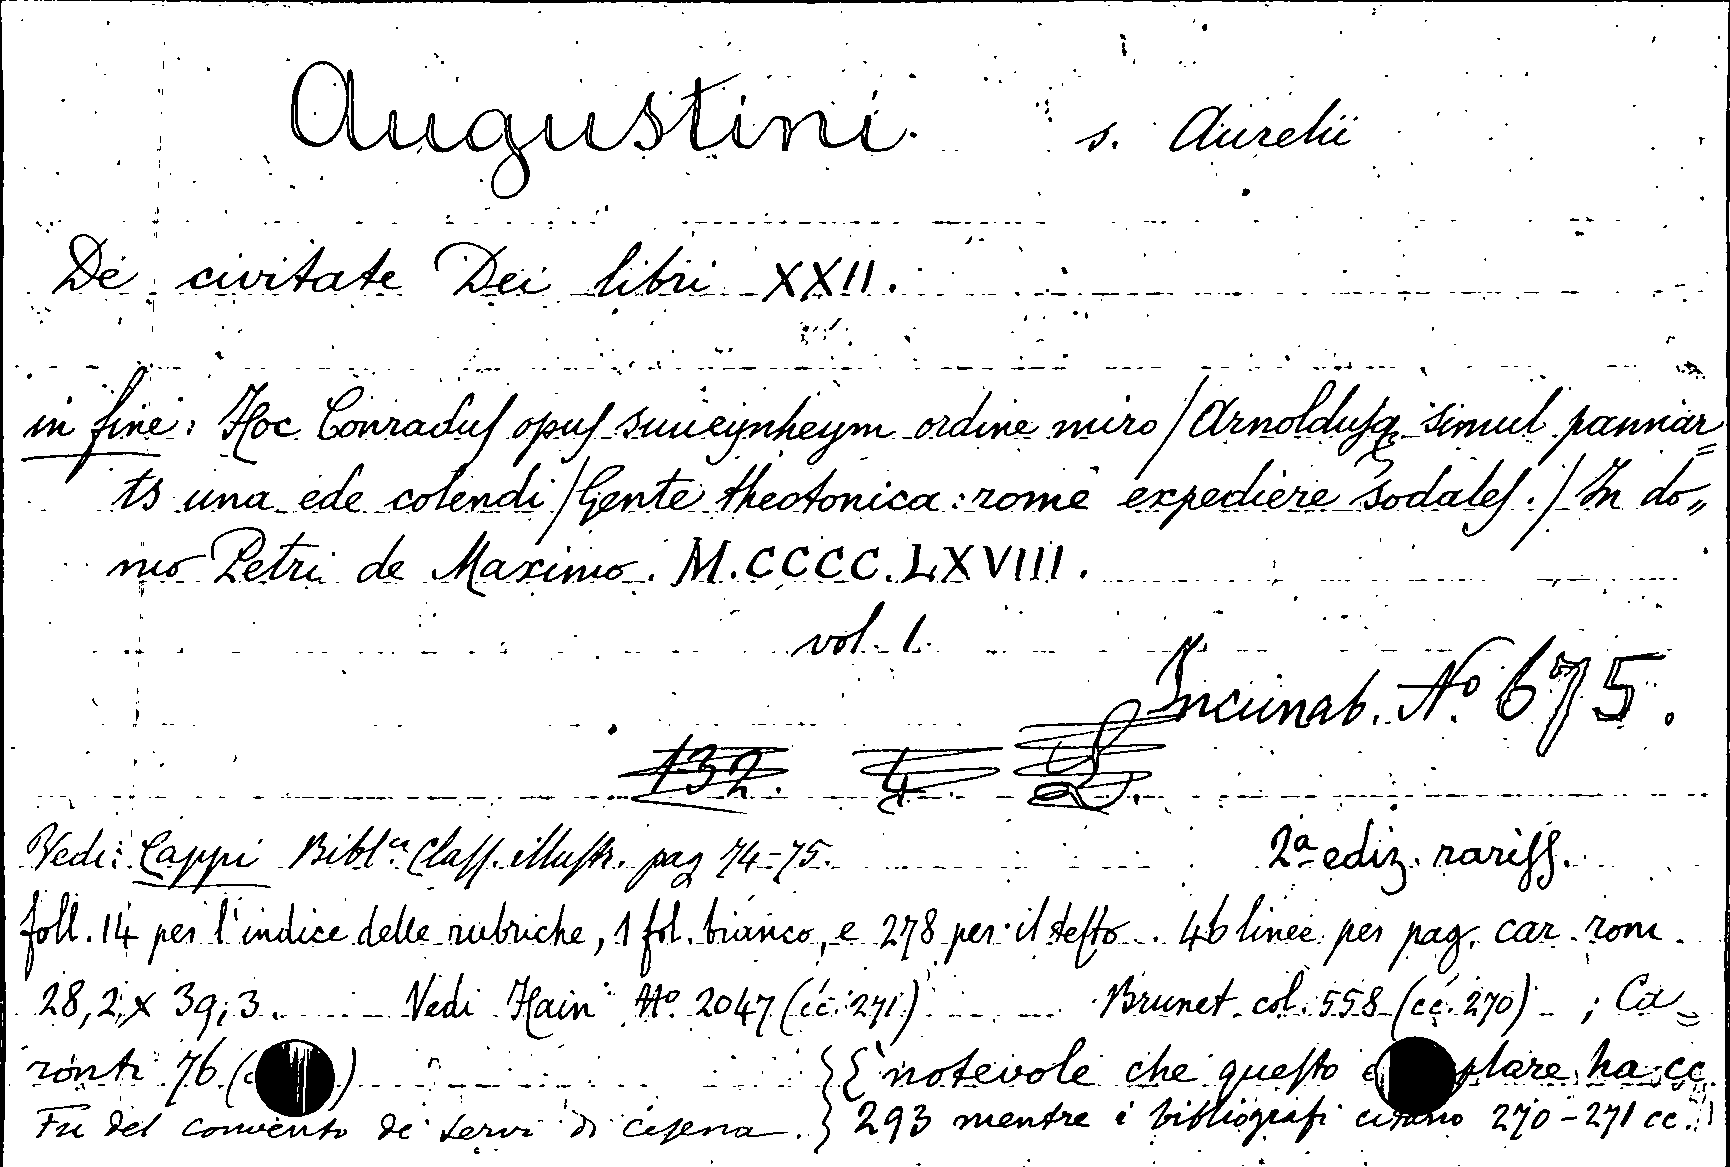 Augustini. s. Aurelii
De civitate Dei libri XXII.
in fine: Hoc Conraduſ opuſ suueynheym ordine miro / Arnolduſq simul panniar=
ts una ede colendi / Gente theotonica: rome expediere Sodaleſ. / In do„
mo Petri de Maximo. M.CCCC.LXVIII.
vol. 1.
Incunab. Nº 675.
132. 4.
Vedi: Cappi Bibl.ª Claſſ. illuſtr. pag 74-75. 2ª ediz. rariſſ.
foll. 14 per l'indice delle rubriche, 1 fol. bianco, e 278 per il teſto. 46 linee per pag. car. rom.
28,2 x 39,3. Vedi Hain Nº 2047 (cc. 271) Brunet col. 558 (cc. 270) ; Ca=
ronti 76 ( ) } È notevole che queſto plare ha cc.
Fu del convento de' Servi di Ceſena. } 293 mentre i bibliografi citano 270-271 cc.